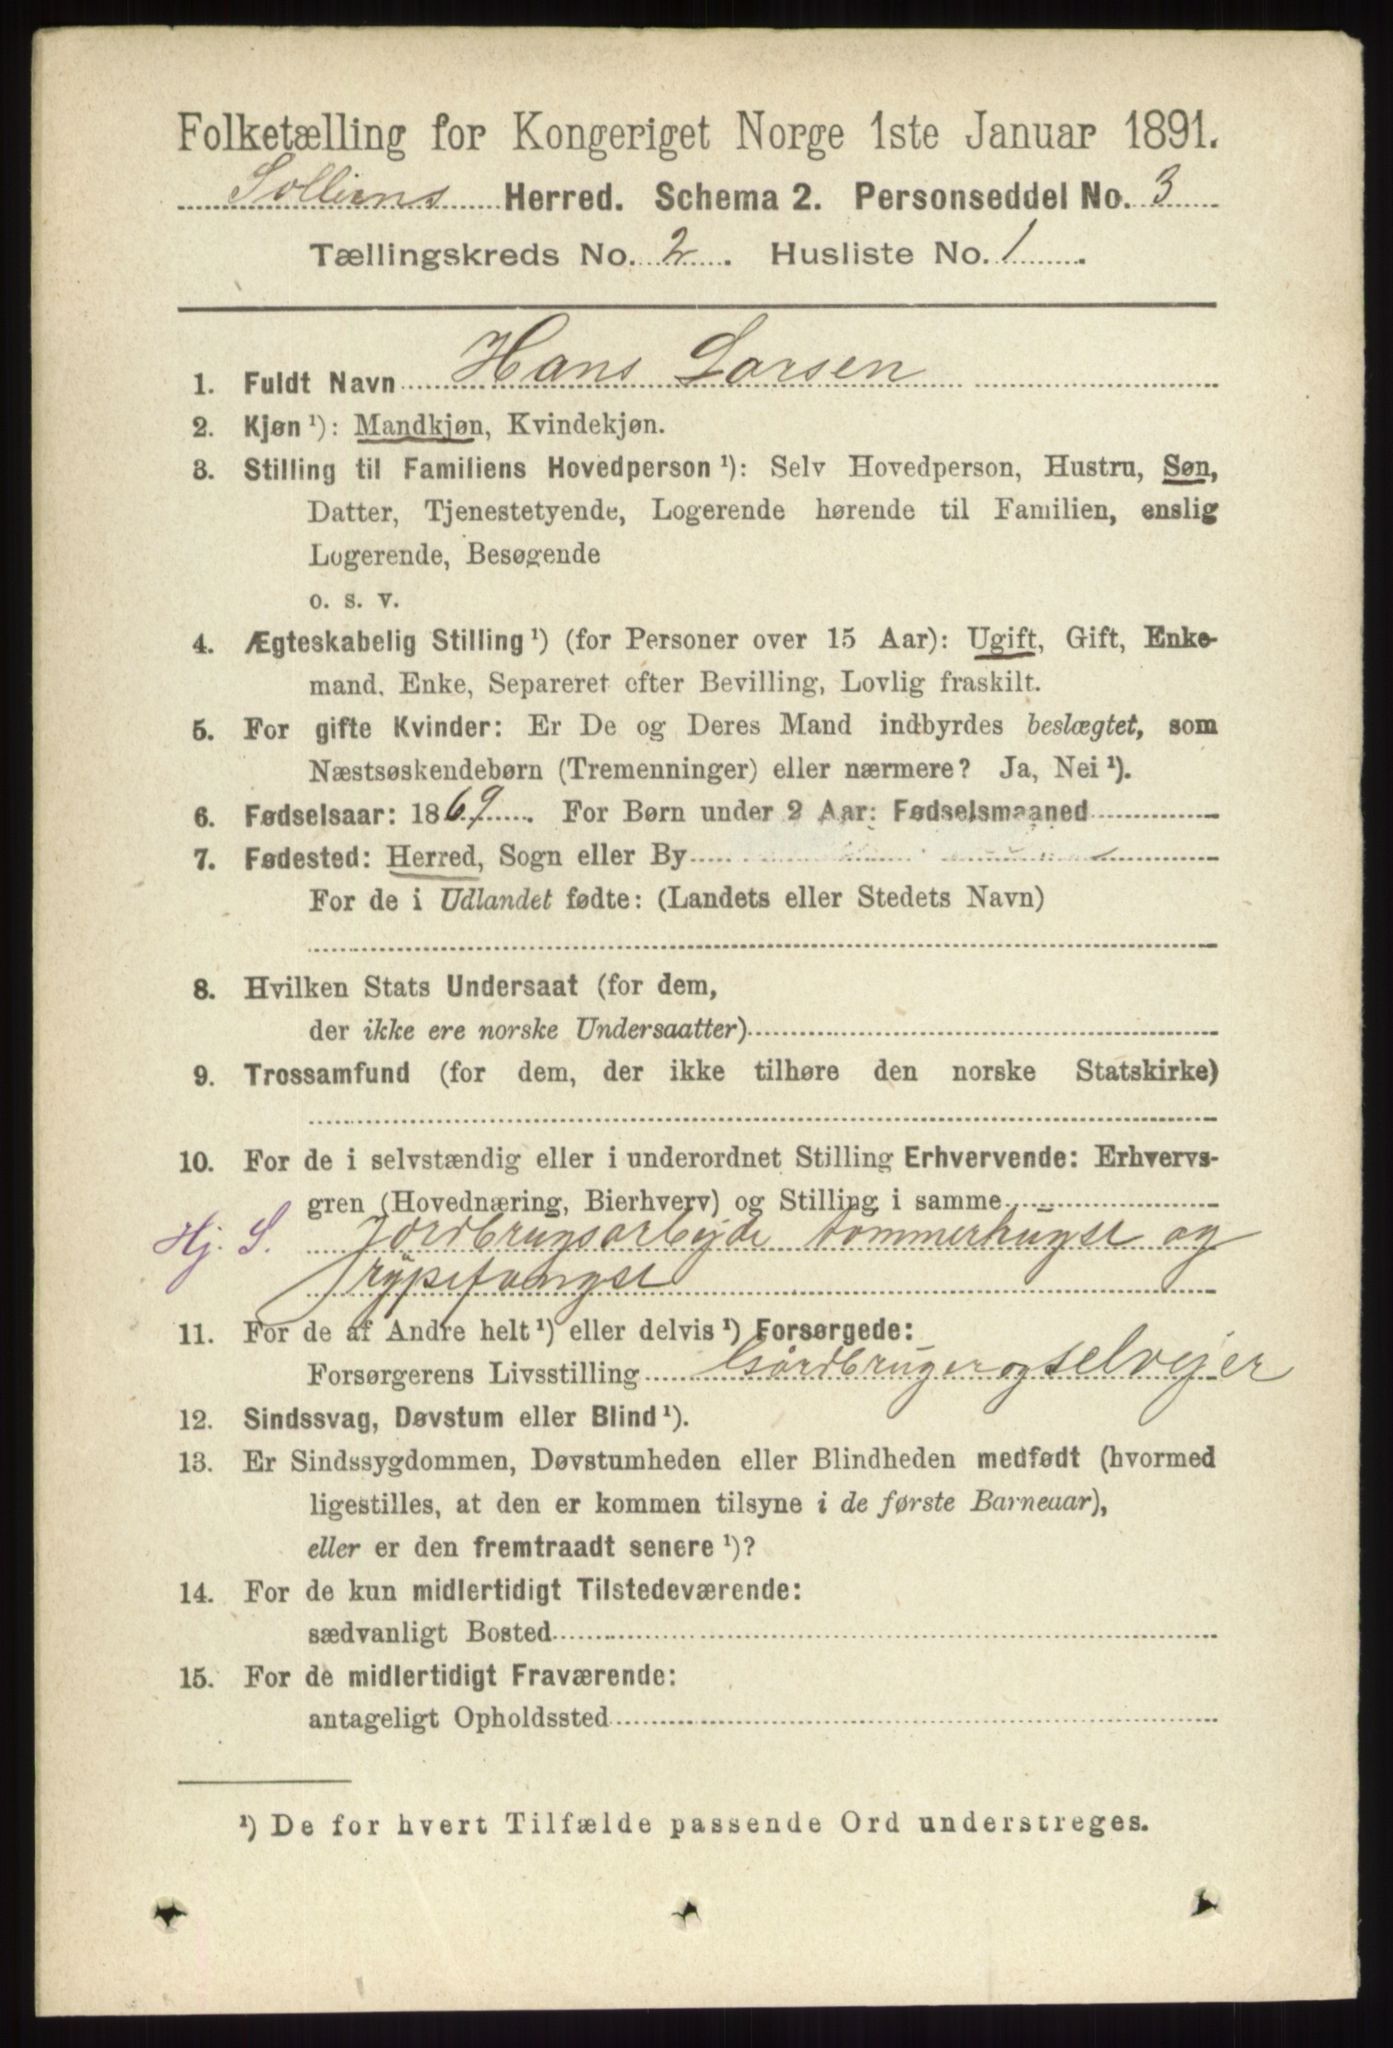 Folketælling for Kongeriget Norge 1ste Januar 1891.
Solliens Herred. Schema 2. Personseddel No. 3
Tællingskreds No. 2. Husliste No. 1.
1. Fuldt Navn Hans Larsen
2. Kjøn ¹): Mandkjøn, Kvindekjøn.
3. Stilling til Familiens Hovedperson ¹): Selv Hovedperson, Hustru, Søn,
Datter, Tjenestetyende, Logerende hørende til Familien, enslig
Logerende, Besøgende
o. s. v.
4. Ægteskabelig Stilling ¹) (for Personer over 15 Aar): Ugift, Gift, Enke-
mand, Enke, Separeret efter Bevilling, Lovlig fraskilt.
5. For gifte Kvinder: Er De og Deres Mand indbyrdes beslægtet, som
Næstsøskendebørn (Tremenninger) eller nærmere? Ja, Nei ¹).
6. Fødselsaar: 1869. For Børn under 2 Aar: Fødselsmaaned
7. Fødested: Herred, Sogn eller By
For de i Udlandet fødte: (Landets eller Stedets Navn)
8. Hvilken Stats Undersaat (for dem,
der ikke ere norske Undersaatter)
9. Trossamfund (for dem, der ikke tilhøre den norske Statskirke)
10. For de i selvstændig eller i underordnet Stilling Erhvervende: Erhvervs-
gren (Hovednæring, Bierhverv) og Stilling i samme
Hj. S. Jordbrugsarbejde tømmerhugst og
Rypefangst
11. For de af Andre helt ¹) eller delvis ¹) Forsørgede:
Forsørgerens Livsstilling Gårdbruger og selvejer
12. Sindssvag, Døvstum eller Blind ¹).
13. Er Sindssygdommen, Døvstumheden eller Blindheden medfødt (hvormed
ligestilles, at den er kommen tilsyne i de første Barneaar),
eller er den fremtraadt senere ¹)?
14. For de kun midlertidigt Tilstedeværende:
sædvanligt Bosted
15. For de midlertidigt Fraværende:
antageligt Opholdssted
¹) De for hvert Tilfælde passende Ord understreges.